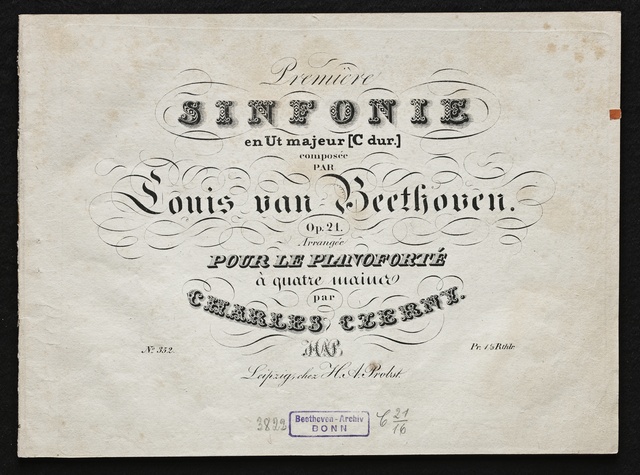 Première
SINFONIE
en Ut majeur [C dur.]
composée
PAR
Louis van Beethoven.
Op. 21.
Arrangée
POUR LE PIANOFORTÉ
à quatre mains
par
CHARLES CZERNY.
HAP.
No. 332.
Pr. 1⅓ Rthlr
Leipzig, chez H. A. Probst.
3822
Beethoven-Archiv
BONN
C 21/16